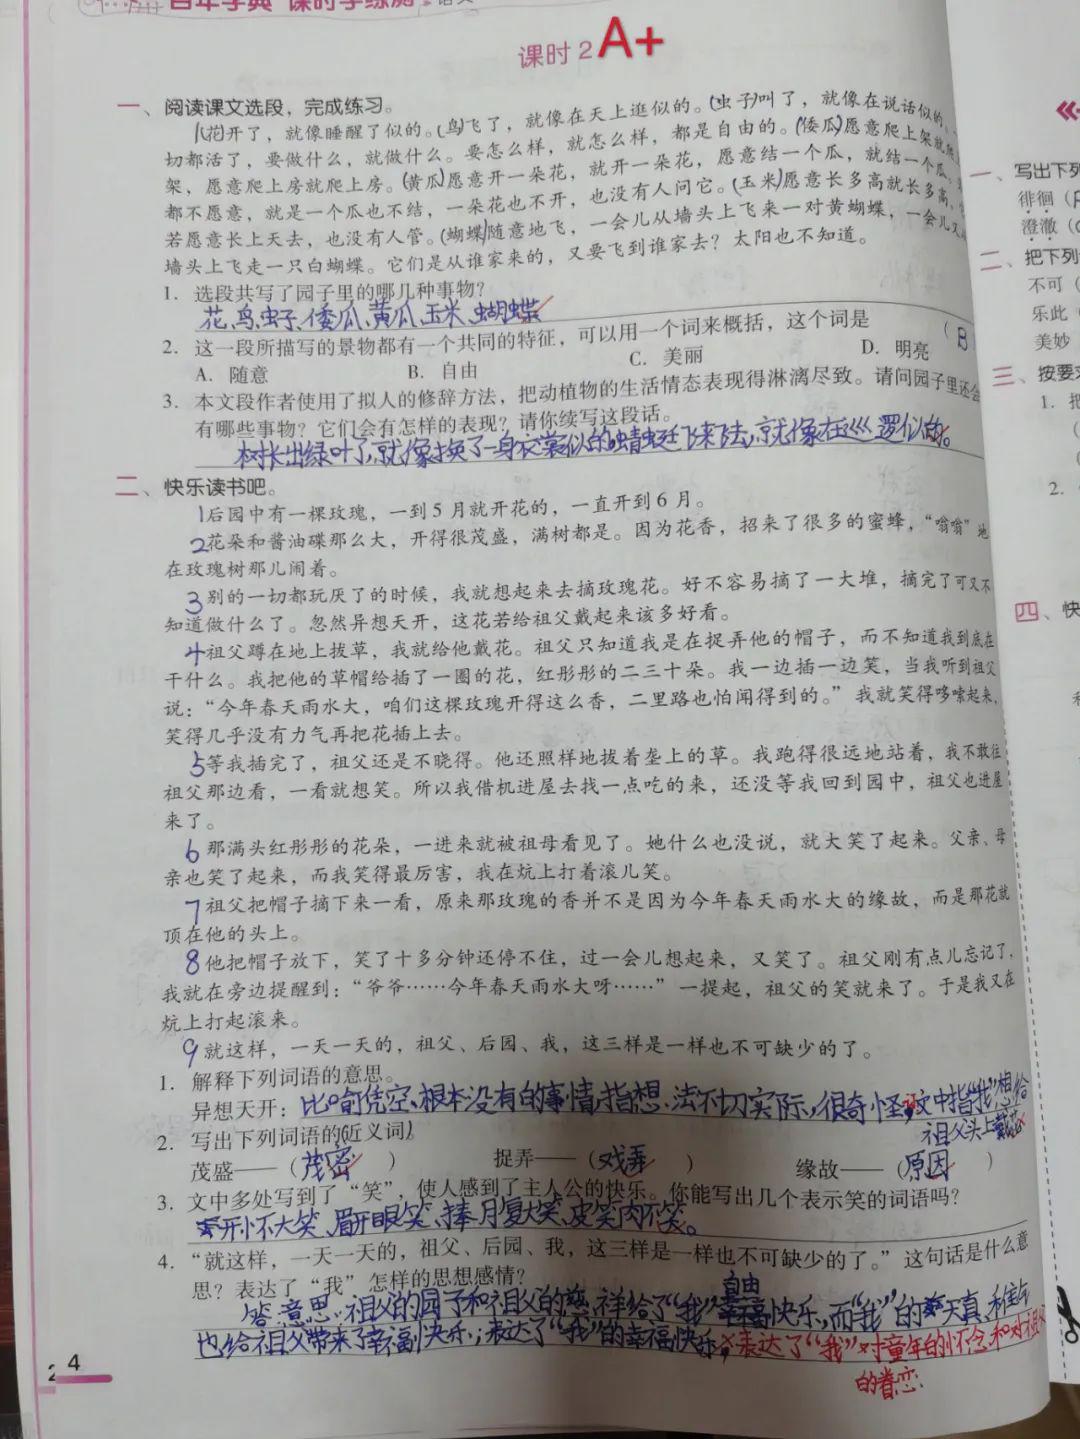 百年学典 课时学练测
课时2 A+
一、阅读课文选段，完成练习。
1(花)开了，就像睡醒了似的。(鸟)飞了，就像在天上逛似的。(虫子)叫了，就像在说话似的。一
切都活了，要做什么，就做什么。要怎么样，就怎么样，都是自由的。(倭瓜)愿意爬上架就爬上
架，愿意爬上房就爬上房。(黄瓜)愿意开一朵花，就开一朵花，愿意结一个瓜，就结一个瓜，
都不愿意，就是一个瓜也不结，一朵花也不开，也没有人问它。(玉米)愿意长多高就长多高，
若愿意长上天去，也没有人管。(蝴蝶)随意地飞，一会儿从墙头上飞来一对黄蝴蝶，一会儿又从
墙头上飞走一只白蝴蝶。它们是从谁家来的，又要飞到谁家去？太阳也不知道。
1. 选段共写了园子里的哪几种事物？
花、鸟、虫子、倭瓜、黄瓜、玉米、蝴蝶
2. 这一段所描写的景物都有一个共同的特征，可以用一个词来概括，这个词是 (B
A. 随意 B. 自由 C. 美丽 D. 明亮
3. 本文段作者使用了拟人的修辞方法，把动植物的生活情态表现得淋漓尽致。请问园子里还会
有哪些事物？它们会有怎样的表现？请你续写这段话。
树长出绿叶了，就像换了一身衣裳似的。蜻蜓飞来飞去，就像在巡逻似的。
二、快乐读书吧。
1后园中有一棵玫瑰，一到5月就开花的，一直开到6月。
2花朵和酱油碟那么大，开得很茂盛，满树都是。因为花香，招来了很多的蜜蜂，“嗡嗡”地
在玫瑰树那儿闹着。
3别的一切都玩厌了的时候，我就想起来去摘玫瑰花。好不容易摘了一大堆，摘完了可又不
知道做什么了。忽然异想天开，这花若给祖父戴起来该多好看。
4祖父蹲在地上拔草，我就给他戴花。祖父只知道我是在捉弄他的帽子，而不知道我到底在
干什么。我把他的草帽给插了一圈的花，红彤彤的二三十朵。我一边插一边笑，当我听到祖父
说：“今年春天雨水大，咱们这棵玫瑰开得这么香，二里路也怕闻得到的。”我就笑得哆嗦起来，
笑得几乎没有力气再把花插上去。
5等我插完了，祖父还是不晓得。他还照样地拔着垄上的草。我跑得很远地站着，我不敢往
祖父那边看，一看就想笑。所以我借机进屋去找一点吃的来，还没等我回到园中，祖父也进屋
来了。
6那满头红彤彤的花朵，一进来就被祖母看见了。她什么也没说，就大笑了起来。父亲、母
亲也笑了起来，而我笑得最厉害，我在炕上打着滚儿笑。
7祖父把帽子摘下来一看，原来那玫瑰的香并不是因为今年春天雨水大的缘故，而是那花就
顶在他的头上。
8他把帽子放下，笑了十多分钟还停不住，过一会儿想起来，又笑了。祖父刚有点儿忘记了，
我就在旁边提醒到：“爷爷……今年春天雨水大呀……”一提起，祖父的笑就来了。于是我又在
炕上打起滚来。
9就这样，一天一天的，祖父、后园、我，这三样是一样也不可缺少的了。
1. 解释下列词语的意思。
异想天开：比喻凭空、根本没有的事情，指想法不切实际，很奇怪，文中指“我”想给
祖父头上戴花
2. 写出下列词语的(近义词)
茂盛——（茂密） 捉弄——（戏弄） 缘故——（原因）
3. 文中多处写到了“笑”，使人感到了主人公的快乐。你能写出几个表示笑的词语吗？
开怀大笑、眉开眼笑、捧腹大笑、皮笑肉不笑。
4. “就这样，一天一天的，祖父、后园、我，这三样是一样也不可缺少的了。”这句话是什么意
思？表达了“我”怎样的思想感情？
自由
答：意思：祖父的园子和祖父的慈祥给了“我”幸福快乐，而“我”的天真
也给祖父带来了幸福快乐；表达了“我”的幸福快乐，表达了“我”对童年的怀念和对祖父
的眷恋
24
一、写出下列
徘徊（
澄澈（
二、把下列
不可（
乐此（
美妙
三、按要求
1. 把
2.
四、快